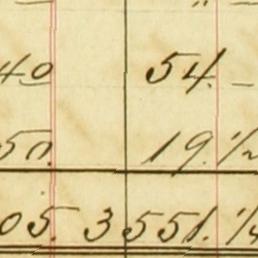 40 54. —
50. 19. 1/2
05. 3551. 1/4